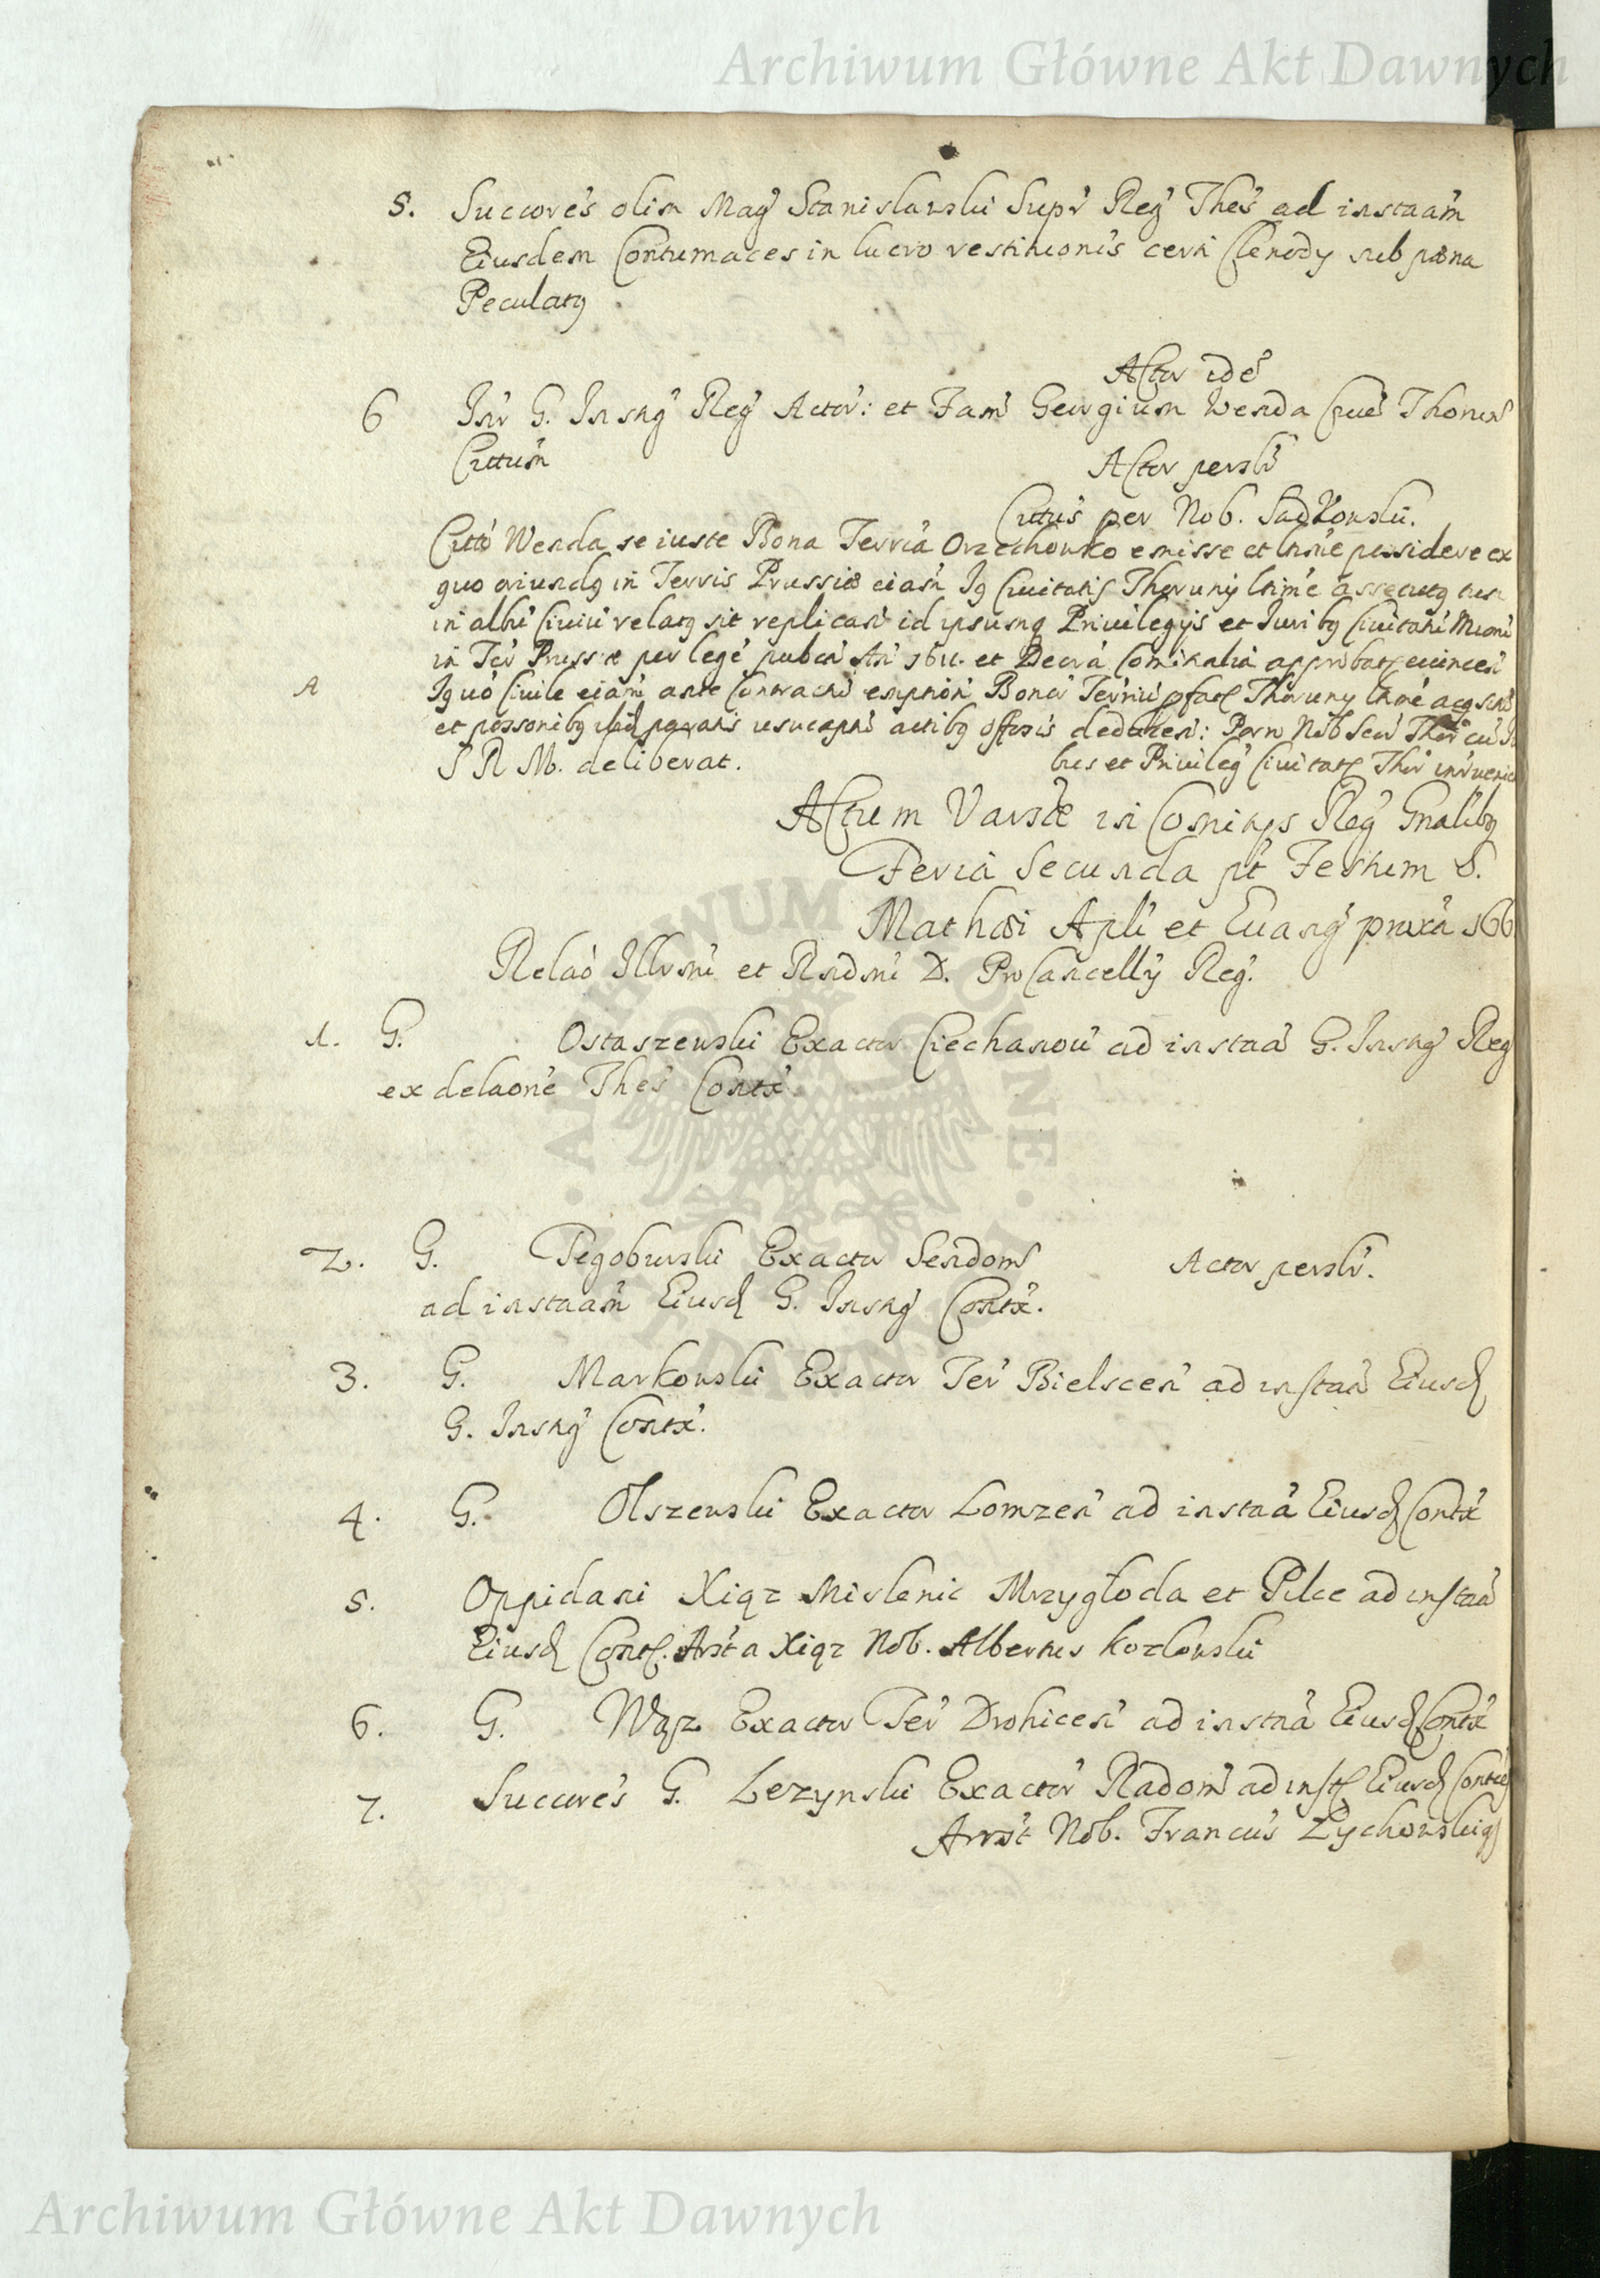 Archiwum Główne Akt Dawnych
5. Succores olim Mag Stanislawski Supr Reg Thes ad instaam
Eiusdem Contumaces in lucro restitucionis certi Clenody sub pœna
Peculatq
Actor idē
6 Inr G. Instig Reg Actor: et Fam Georgium Wenda Ciuē Thorun
Cittum
Actor persōlr
Cittus per Nob. Sadkowski.
Citto Wenda se iuste Bona Terria Orzechowko emisse et ltime possidere ex
quo oriundq in Terris Prussiæ eiam Iq Ciuitatis Thoruny ltime assecutq tum
in albū Ciuiū relatq sit replican id ipsumq Priuilegijs et Iuribq Ciuitatū
in Ter Prussiæ per legē publcā An 1611. et Decra Comitialia approbat euincen
A Iq uo Ciuile eiam ante Contractū emption Bonor Terriū pfat Thoruny ltime acqsitū
et possonibq ibid paratis usucapni actibq offosis deducen: Parn Nob Scu Thor cū
S R M. deliberat.
bus et Priuileg Ciuitat Thor
Actum Varsæ in Comitijs Reg Gnalibq
Feria Secunda pt Festum S.
Mathæi Apli et Euang proxa 166
Relao Illrmi et Rndmi D. ProCancellij Reg.
1. G. Ostaszewski Exactor Ciechanou ad instaā G. Instig Reg
ex delaone Thes Contx
2. G. Pegobuwski Exactor Sendom Actor persolr.
ad instaam Eiusd G. Instig Contx.
3. G. Markowski Exactor Ter Bielscen ad instaā Eiusd
G. Instig Contx.
4. G. Olszewski Exactor Lomzen ad instaā Eiusd Contx
5. Oppidani Xiąz Mislenic Mrzygłoda et Pilce ad instaā
Eiusd Cont. Arst a Xiąz Nob. Albertus Kozlowski
6. G. Wąz Exactor Ter Drohicen ad instaā Eiusd Contx
7. Succores G. Lezynski Exactor Radom ad inst Eiusd Contu
Arrst Nob. Francus Zychowski
ARCHIWUM GŁÓWNE AKT DAWNYCH
Archiwum Główne Akt Dawnych